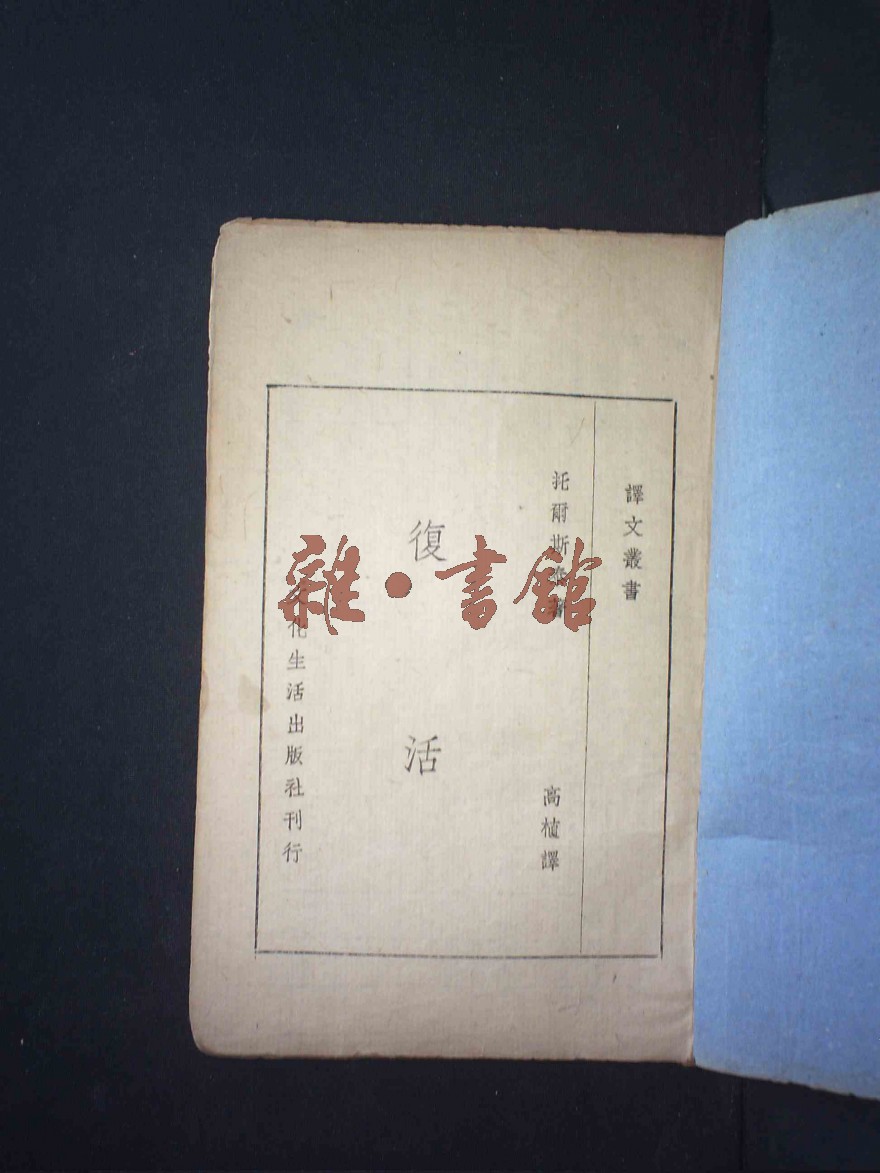 譯文叢書
托爾斯泰著
高植譯
復活
文化生活出版社刊行
雜·書館